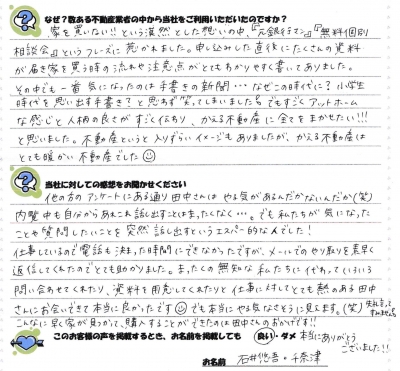 なぜ?数ある不動産業者の中から当社をご利用いただいたのですか?
家を買いない!!という漠然とした想いの中、『元銀行マン』『無料個別
相談会』というフレーズに惹かれました。申し込みした直後にたくさんの資料
が届き家を買う時の流れや注意点がとてもわかりやすく書いてありました。
その中でも一番気になったのは手書きの新聞…なぜこの時代に?小学生
時代を思い出す手書き?と思わず笑ってしまいましたがでもすごくアットホーム
な感じと人柄の良さがすごく伝わり、かえる不動産に全てをまかせたい!!!
と思いました。不動産というと入りずらいイメージもありましたが、かえる不動産は
とても暖かい不動産でした
当社に対しての感想をお聞かせください
他の方のアンケートにある通り田中さんはやる気があるんだかないんだか(笑)
内覧中も自分からあれこれ話し出すことはまったくなく…。でも私たちが気になった
ことや質問したいことを突然話し出すというエスパー的な人でした!
仕事しているので電話も決まった時間にできなかったですが、メールでのやり取りを素早く
返信してくれたのでとても助かりました。まったくの無知な私たちに代わっていろいろ
問い合わせてくれたり、資料を用意してくれたりと仕事に対してとても熱のある田中
さんにお会いできて本当に良かったです でも本当にやる気なさそうに見えます。(笑) 失礼言ってすみません
こんなに早く家が見つかって、購入することができたのは田中さんのおかげです!!
このお客様の声を掲載するとき、お名前を掲載しても 良い・ダメ 本当にありがとう
ございました!!
お名前 石井悠吾・千奈津